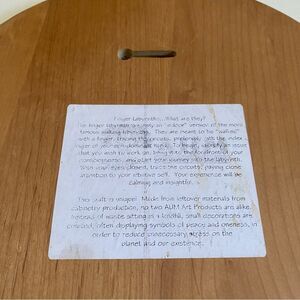 Finger Labyrinths...What are they?
The finger labyrinth is simply an "indoor" version of the more
famous walking labyrinths. They are meant to be "walked"
with a finger, tracing the circuits, preferably with the index
finger of your non-dominant hand. To begin, identify an issue
that you wish to work on, bring into the forefront of your
consciousness, and start your journey into the labyrinth.
With your eyes closed, trace the circuits, paying close
attention to your intuitive self. Your experience will be
calming and insightful.
This craft is unique! Made from leftover materials from
cabinetry production, no two AUM Art Products are alike.
Instead of waste sitting in a landfill, small decorations are
created, often displaying symbols of peace and oneness, in
order to reduce unnecessary stress on the
planet and our existence.